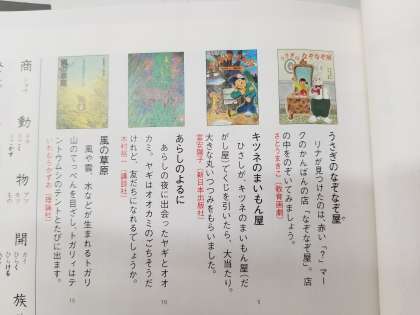 うさぎのなぞなぞ屋
リナが見つけたのは、赤い「？」マー
クのかんばんの店「なぞなぞ屋」。店
の中をのぞいてみましょう。
さとうまきこ〈教育画劇〉
キツネのまいもん屋
ひさしが、キツネのまいもん屋（だ
がし屋）でくじを引いたら、大当たり。
大きな丸いつつみをもらいました。
富安陽子〈新日本出版社〉
あらしのよるに
あらしの夜に出会ったヤギとオオ
カミ。ヤギはオオカミのごちそうだ
けれど、友だちになれるでしょうか。
木村裕一〈講談社〉
風の草原
風や雲、水などが生まれるトガリ
山のてっぺんを目ざし、トガリィはテ
ントウムシのテントとたびに出ます。
いわむらかずお〈理論社〉
商
動
物
開
族